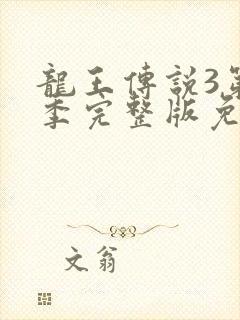 龍王傳説3第
季完整版免
文翁